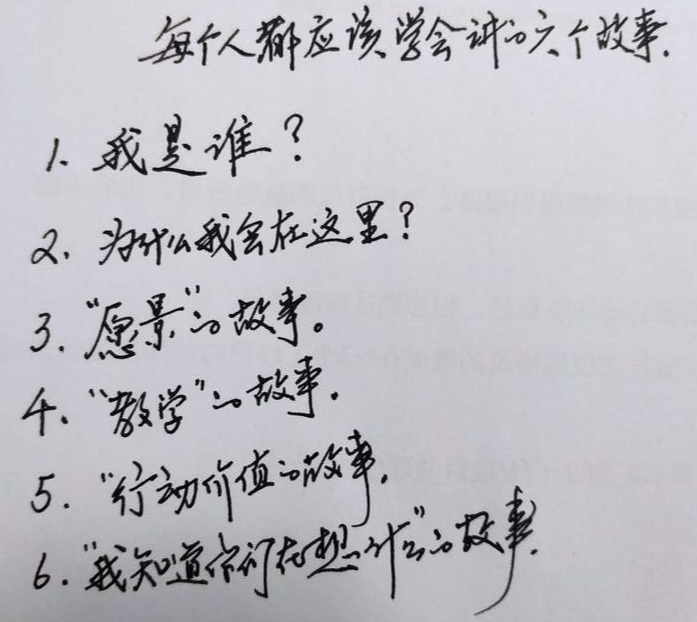 每个人都应该学会讲的六个故事.
1. 我是谁？
2. 为什么我会在这里？
3. “愿景”的故事。
4. “教学”的故事.
5. “行动价值的故事.
6. “我知道你们在想什么”的故事.